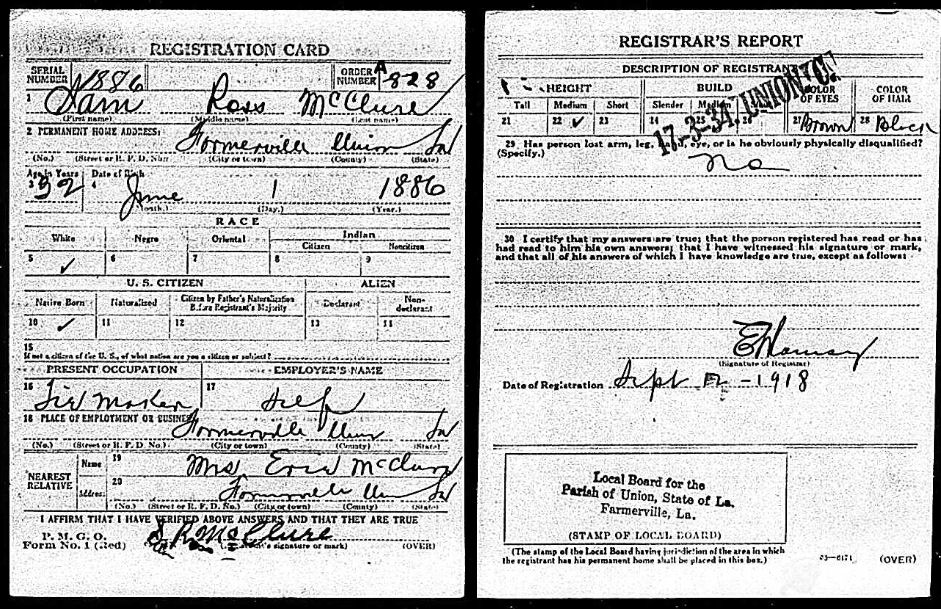 REGISTRATION CARD
SERIAL NUMBER 1886 ORDER NUMBER A 828
1 Sam Ross McClure
(First name) (Middle name) (Last name)
2 PERMANENT HOME ADDRESS:
Formerville Union La
(No.) (Street or R. F. D. No.) (City or town) (County) (State)
Age in Years Date of Birth
3 32 4 June 1 1886
(Month.) (Day.) (Year.)
RACE
White Negro Oriental Indian
Citizen Noncitizen
5 ✓ 6 7 8 9
U. S. CITIZEN ALIEN
Native Born Naturalized Citizen by Father's Naturalization Before Registrant's Majority Declarant Non-declarant
10 ✓ 11 12 13 14
15
If not a citizen of the U. S., of what nation are you a citizen or subject?
PRESENT OCCUPATION EMPLOYER'S NAME
16 Tie Maker 17 Self
18 PLACE OF EMPLOYMENT OR BUSINESS
Formerville Union La
(No.) (Street or R. F. D. No.) (City or town) (County) (State)
NEAREST RELATIVE Name 19 Mrs McClure
Address 20 Formerville Union La
(No.) (Street or R. F. D. No.) (City or town) (County) (State)
I AFFIRM THAT I HAVE VERIFIED ABOVE ANSWERS AND THAT THEY ARE TRUE
P. M. G. O.
Form No. 1 (Red) S R McClure
(Registrant's signature or mark) (OVER)
REGISTRAR'S REPORT
DESCRIPTION OF REGISTRANT
HEIGHT BUILD COLOR OF EYES COLOR OF HAIR
Tall Medium Short Slender Medium Stout
21 22 ✓ 23 24 25 26 27 Brown 28 Black
17-3-34. UNION C.
29 Has person lost arm, leg, hand, eye, or is he obviously physically disqualified?
(Specify.) No
30 I certify that my answers are true; that the person registered has read or has
had read to him his own answers; that I have witnessed his signature or mark,
and that all of his answers of which I have knowledge are true, except as follows:
(Signature of Registrar)
Date of Registration Sept 12 - 1918
Local Board for the
Parish of Union, State of La.
Farmerville, La.
(STAMP OF LOCAL BOARD)
(The stamp of the Local Board having jurisdiction of the area in which
the registrant has his permanent home shall be placed in this box.)
03—6171 (OVER)